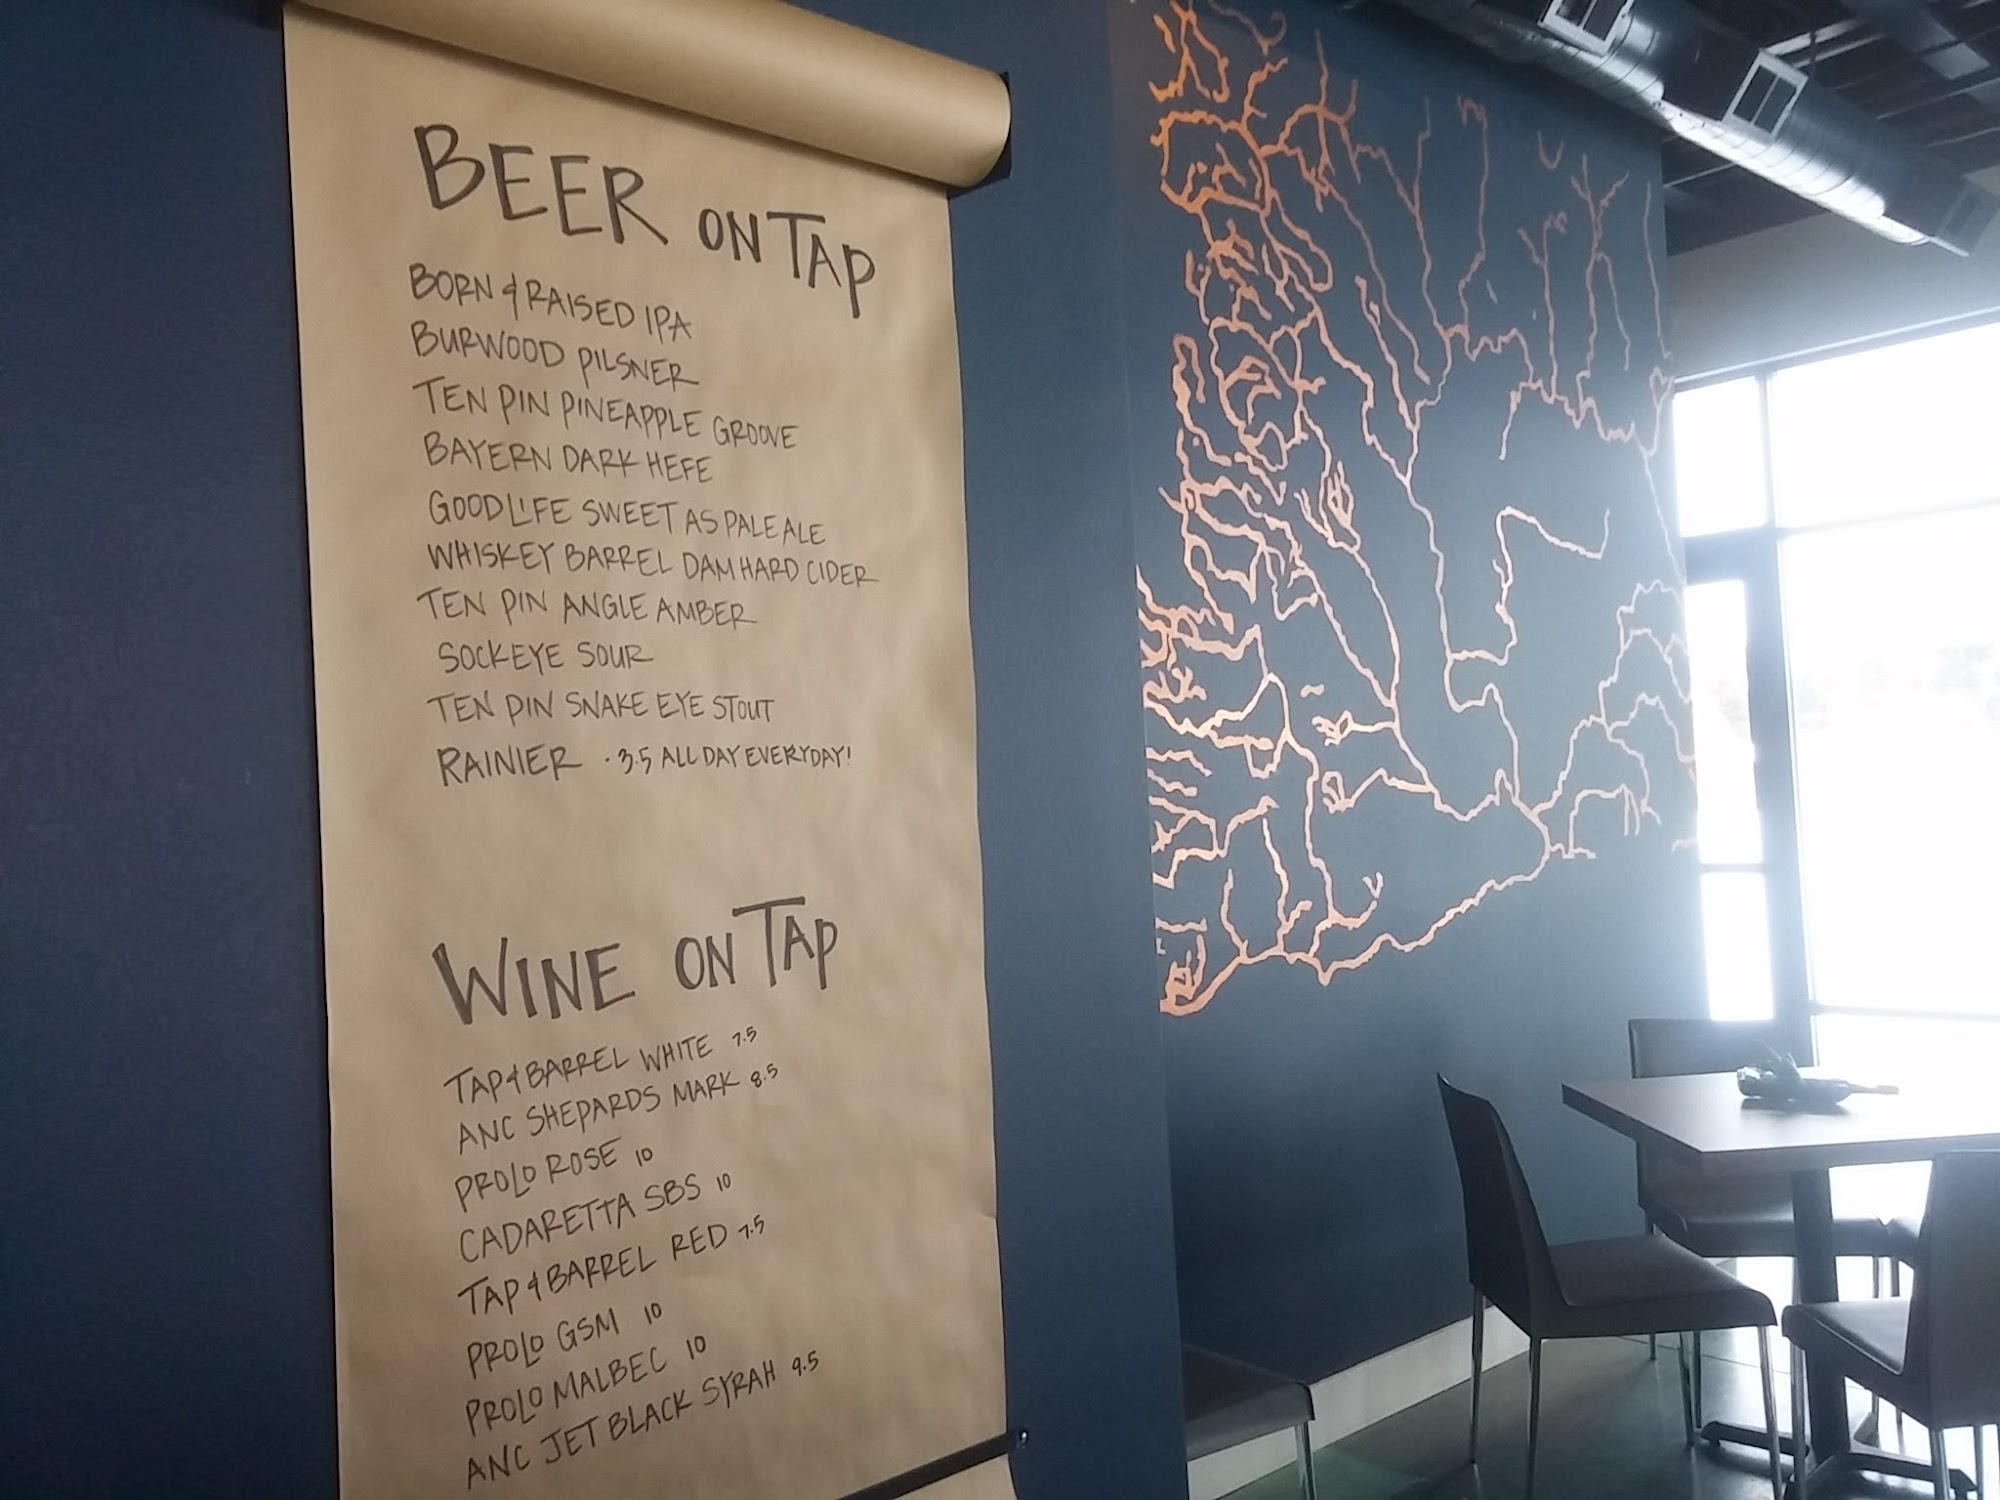 BEER ON TAP
BORN & RAISED IPA
BURWOOD PILSNER
TEN PIN PINEAPPLE GROOVE
BAYERN DARK HEFE
GOODLIFE SWEET AS PALE ALE
WHISKEY BARREL DAM HARD CIDER
TEN PIN ANGLE AMBER
SOCKEYE SOUR
TEN PIN SNAKE EYE STOUT
RAINIER · 3.5 ALL DAY EVERYDAY!
WINE ON TAP
TAP & BARREL WHITE 7.5
ANC SHEPARDS MARK 8.5
PROLO ROSE 10
CADARETTA SBS 10
TAP & BARREL RED 7.5
PROLO GSM 10
PROLO MALBEC 10
ANC JET BLACK SYRAH 9.5